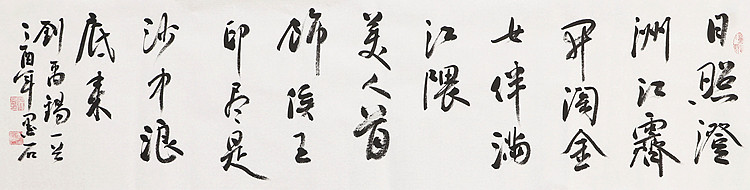 日照澄
洲江霧
开淘金
女伴满
江隈
美人首
飾侯王
印尽是
沙中浪
底来
劉禹錫一首
酉年墨石